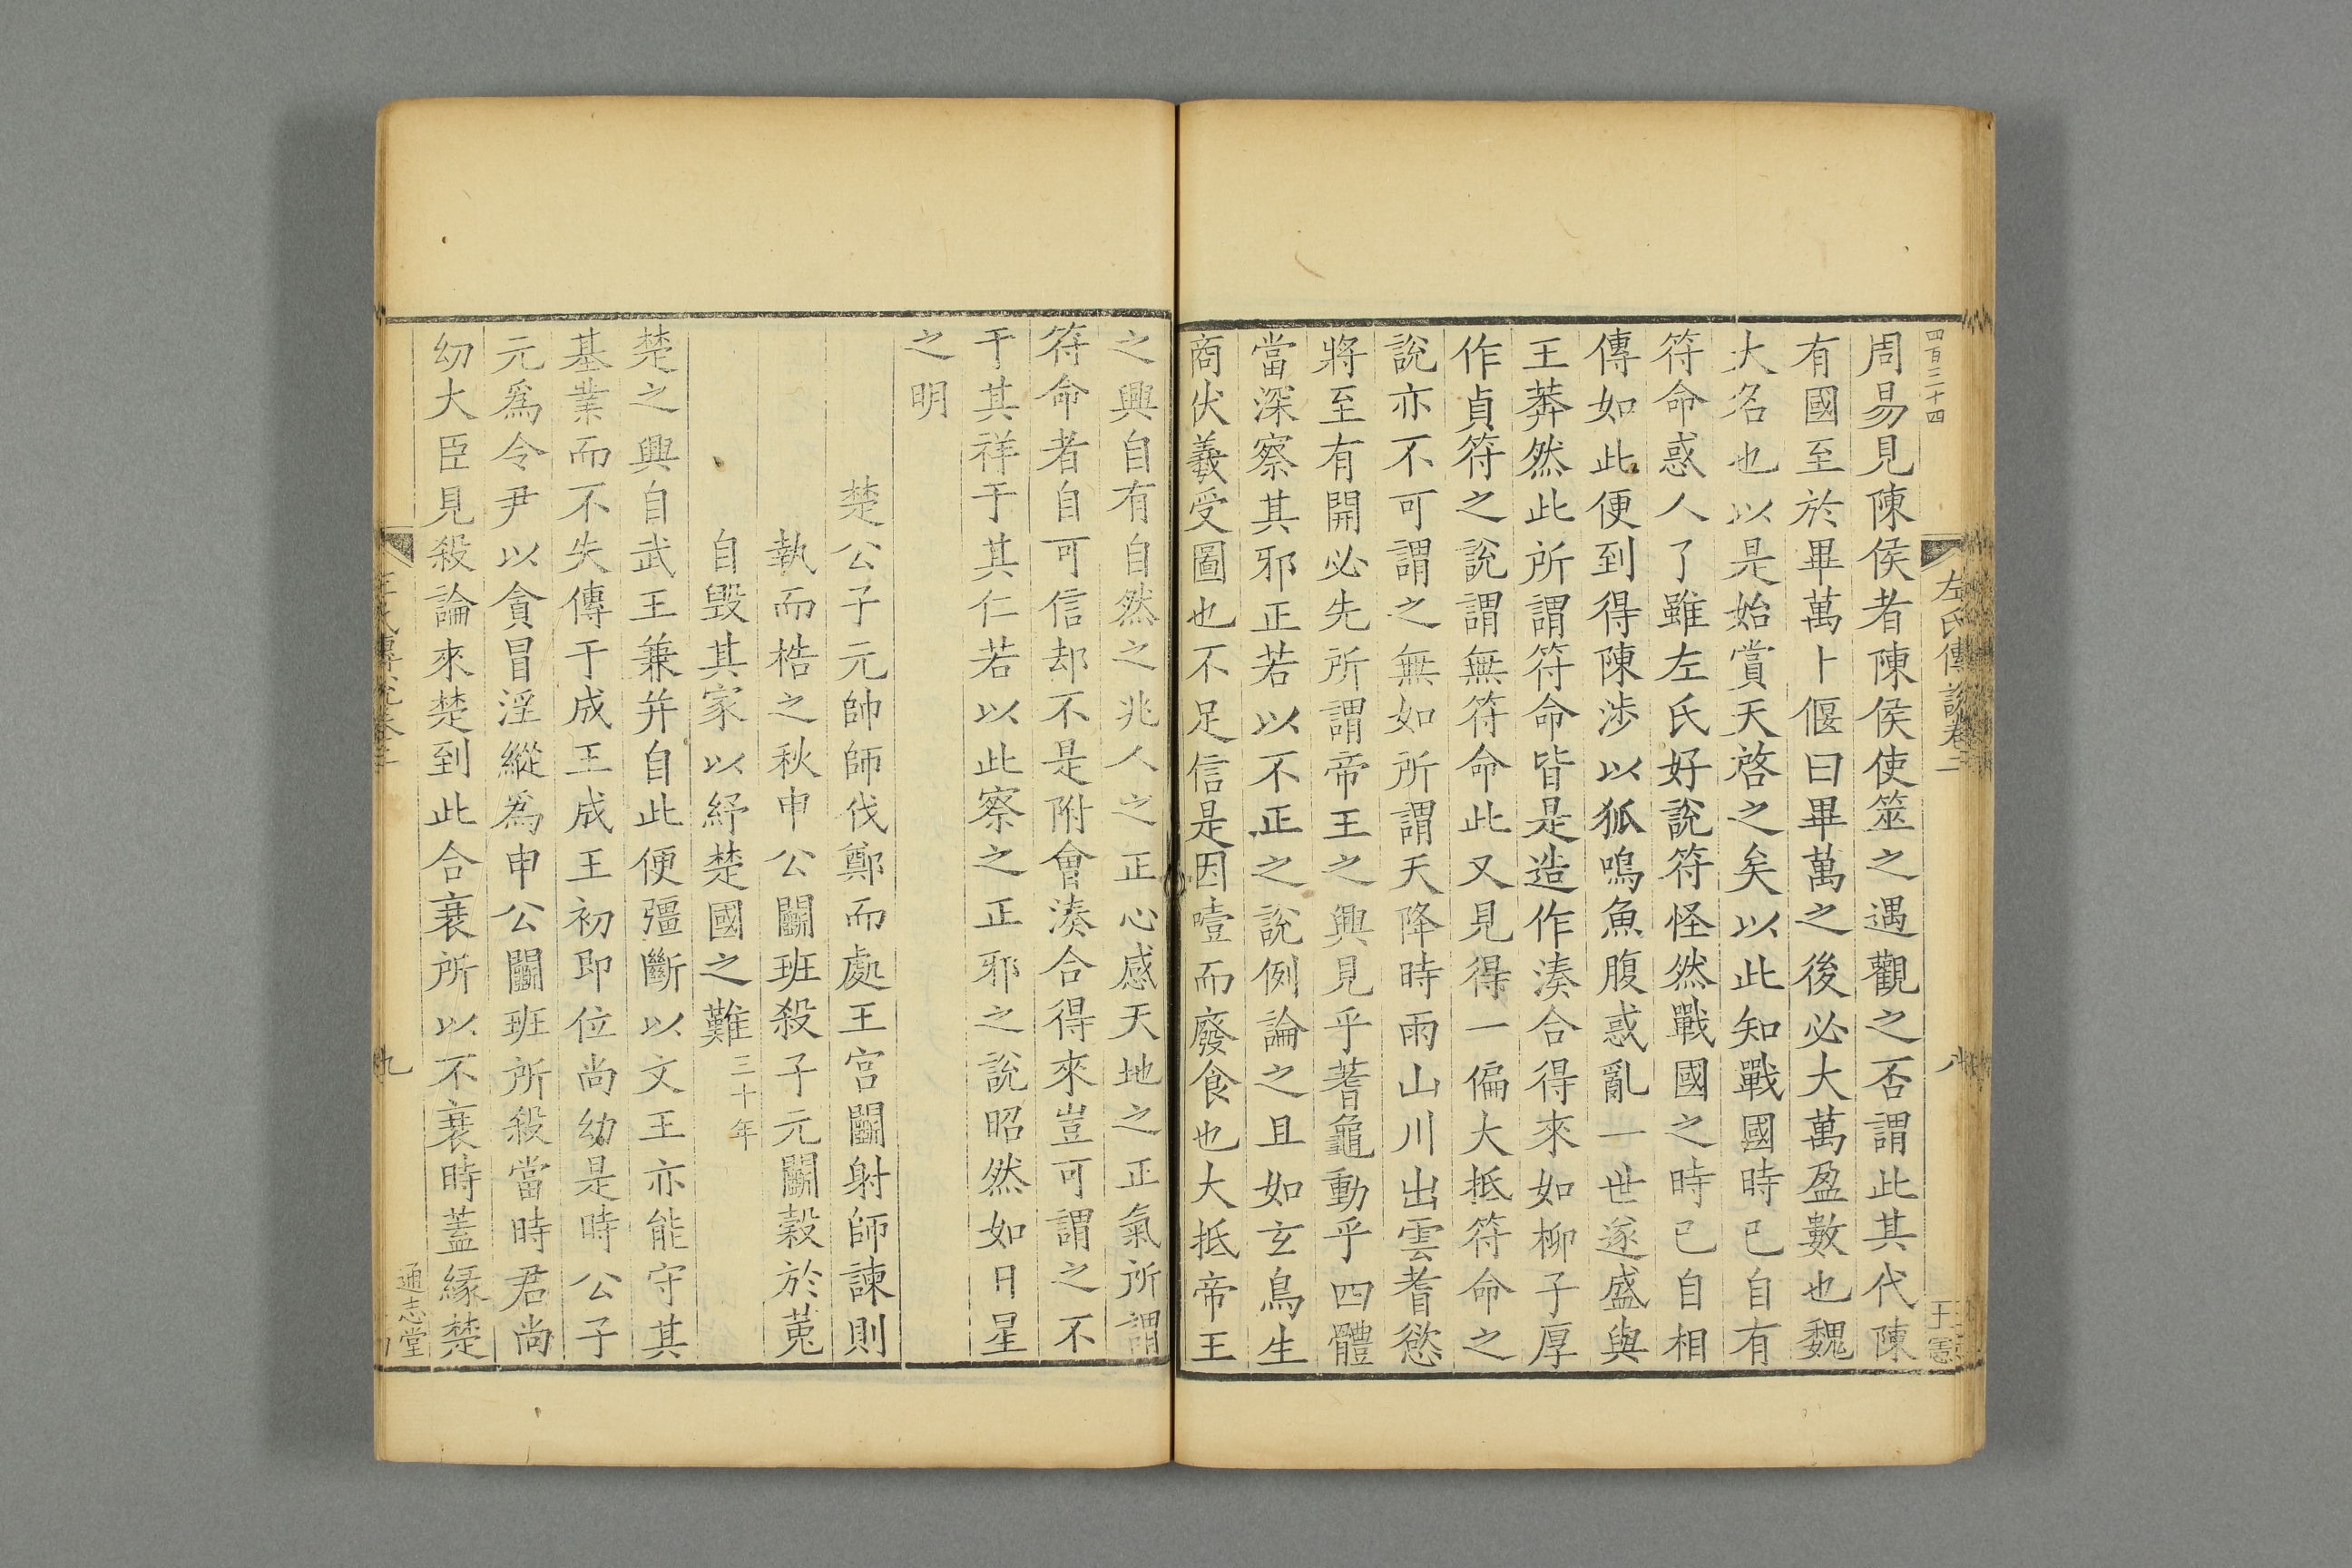 四百三十四
左氏傳說卷二
八
王憲
周易見陳侯者陳侯使筮之遇觀之否謂此其代陳
有國至於畢萬卜偃曰畢萬之後必大萬盈數也魏
大名也以是始賞天啓之矣以此知戰國時已自有
符命惑人了雖左氏好說符怪然戰國之時已自相
傳如此便到得陳涉以狐鳴魚腹惑亂一世遂盛與
王莽然此所謂符命皆是造作湊合得來如柳子厚
作貞符之說謂無符命此又見得一偏大抵符命之
說亦不可謂之無如所謂天降時雨山川出雲耆慾
將至有開必先所謂帝王之興見乎蓍龜動乎四體
當深察其邪正若以不正之說例論之且如玄鳥生
商伏羲受圖也不足信是因噎而廢食也大抵帝王
之興自有自然之兆人之正心感天地之正氣所謂
符命者自可信却不是附會湊合得來豈可謂之不
于其祥于其仁若以此察之正邪之說昭然如日星
之明
楚公子元帥師伐鄭而處王宮鬭射師諫則
執而梏之秋申公鬭班殺子元鬭穀於菟
自毀其家以紓楚國之難三十年
楚之興自武王兼并自此便彊斷以文王亦能守其
基業而不失傳于成王成王初即位尚幼是時公子
元爲令尹以貪冒淫縱爲申公鬭班所殺當時君尚
幼大臣見殺論來楚到此合衰所以不衰時蓋緣楚
九
通志堂